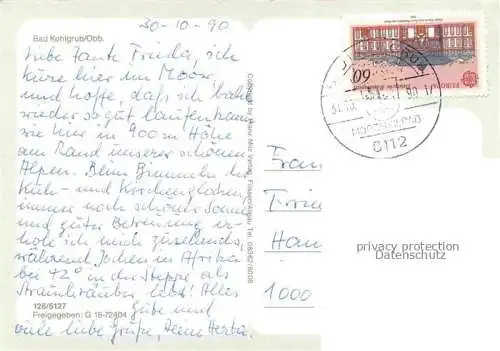 30-10-90
Bad Kohlgrub/Obb.
Liebe Tante Frieda, ich
kure hier im Moor
und hoffe, daß ich bald
wieder so gut laufen kann
wie hier in 900 m Höhe
am Rand unserer schönen
Alpen. Beim Bimmeln der
Kuh- und Kirchenglocken,
immer noch schöner Sonne
und guter Betreuung er-
hole ich mich zusehends,
während Jochen in Afrika
bei 42° in der Steppe als
Strauchräuber lebt! Alles
gute und
viele liebe Grüße, Deine Herta.
126/5127
Freigegeben: G 18-72404
60
8112
Fran
Frie
Han
1000
privacy protection
Datenschutz